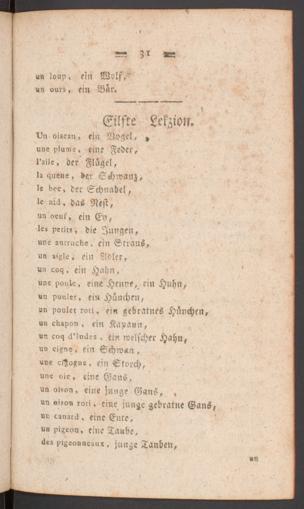 31
un loup, ein Wolf,
un ours, ein Bär.
Eilfte Lekzion.
Un oiseau, ein Vogel,
une plume, eine Feder,
l'aile, der Flügel,
la queue, der Schwanz,
le bec, der Schnabel,
le nid, das Nest,
un oeuf, ein Ey,
les petits, die Jungen,
une autruche, ein Straus,
un aigle, ein Adler,
un coq, ein Hahn,
une poule, eine Henne, ein Huhn,
un poulet, ein Hünchen,
un poulet roti, ein gebratnes Hünchen,
un chapon, ein Kapaun,
un coq d'Indes, ein welscher Hahn,
un cigne, ein Schwan,
une cigogne, ein Storch,
une oie, eine Gans,
un oison, eine junge Gans,
un oison roti, eine junge gebratne Gans,
un canard, eine Ente,
un pigeon, eine Taube,
des pigeonneaux, junge Tauben,
un